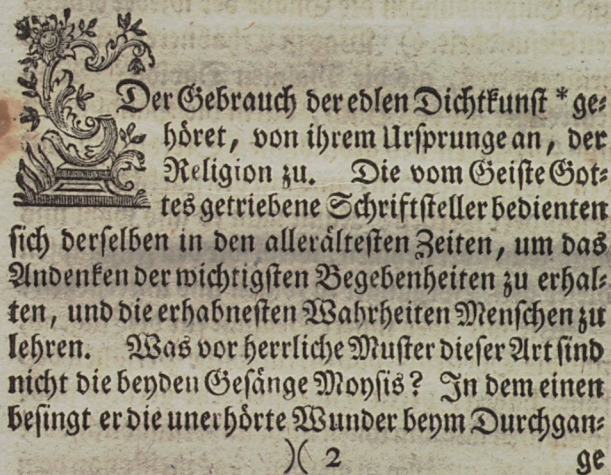 Der Gebrauch der edlen Dichtkunst * ge⸗
höret, von ihrem Ursprunge an, der
Religion zu. Die vom Geiste Got⸗
tes getriebene Schriftsteller bedienten
sich derselben in den allerältesten Zeiten, um das
Andenken der wichtigsten Begebenheiten zu erhal⸗
ten, und die erhabnesten Wahrheiten Menschen zu
lehren. Was vor herrliche Muster dieser Art sind
nicht die beyden Gesänge Moysis? In dem einen
besingt er die unerhörte Wunder beym Durchgan⸗
)( 2 ge